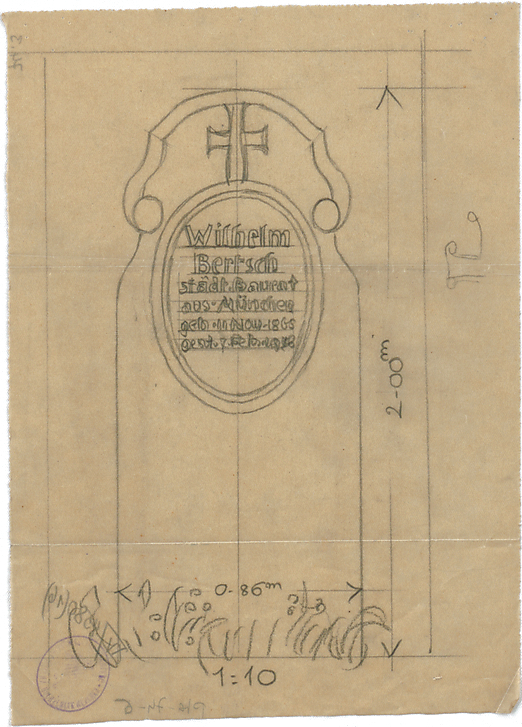 Wilhelm
Bertsch
städt. Baurat
aus München
geb. 11 Nov. 1865
gest. 7 Feb.
2.00 m
0.86 m
1:10